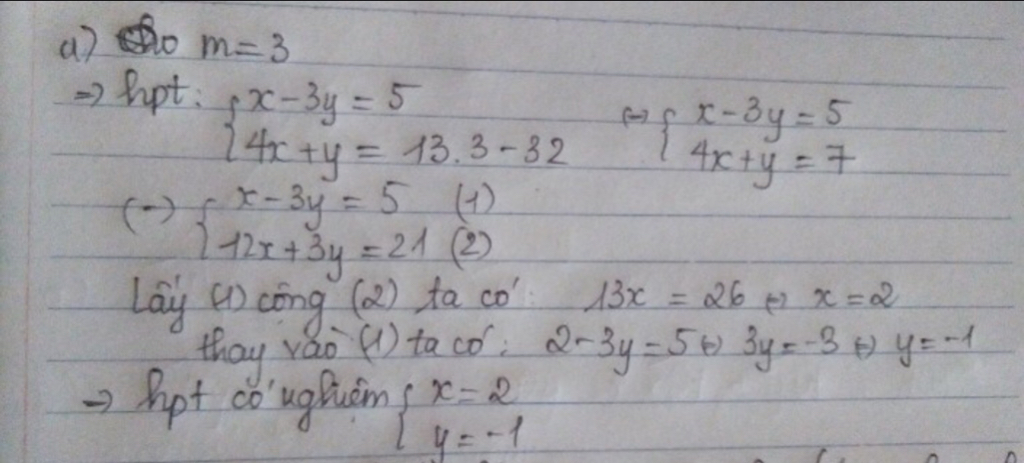 a) Cho m = 3
=> hpt: { x - 3y = 5 <=> { x - 3y = 5
4x + y = 13.3 - 32 4x + y = 7
<=> { x - 3y = 5 (1)
12x + 3y = 21 (2)
Lấy (1) cộng (2) ta có: 13x = 26 <=> x = 2
thay vào (1) ta có: 2 - 3y = 5 <=> 3y = -3 <=> y = -1
=> hpt có nghiệm { x = 2
y = -1